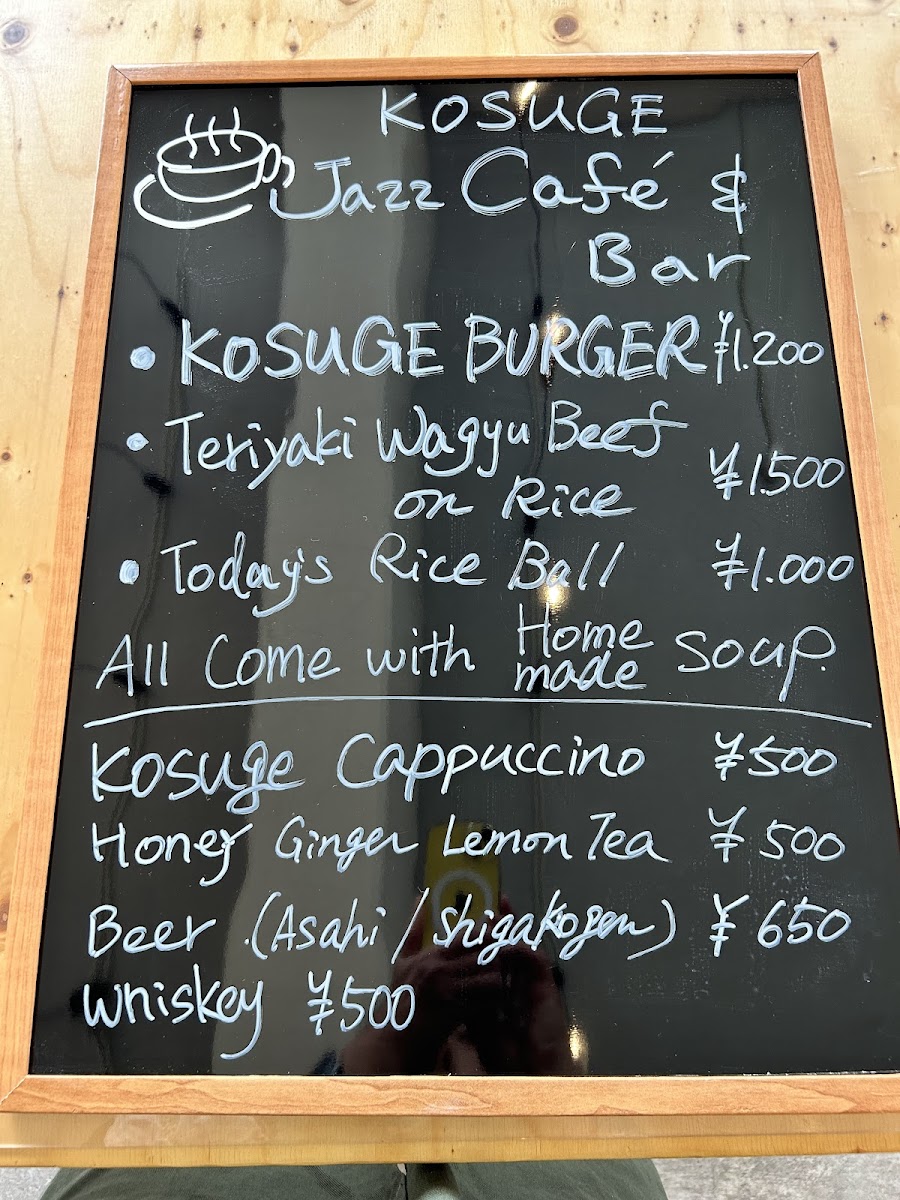 KOSUGE
Jazz Café &
Bar
• KOSUGE BURGER ¥1.200
• Teriyaki Wagyu Beef
on Rice ¥1.500
• Today's Rice Ball ¥1.000
All Come with Home made Soup.
Kosuge Cappuccino ¥500
Honey Ginger Lemon Tea ¥500
Beer (Asahi / Shigakogen) ¥650
Whiskey ¥500